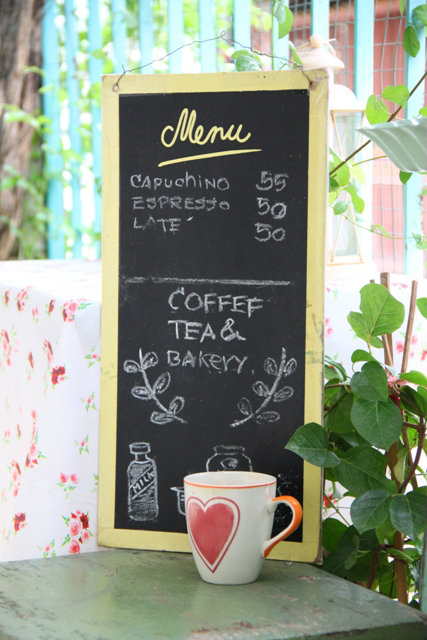 Menu
CAPUCHINO 55
ESPRESSO 50
LATE´ 50
COFFEF
TEA &
BAKERY
MILK